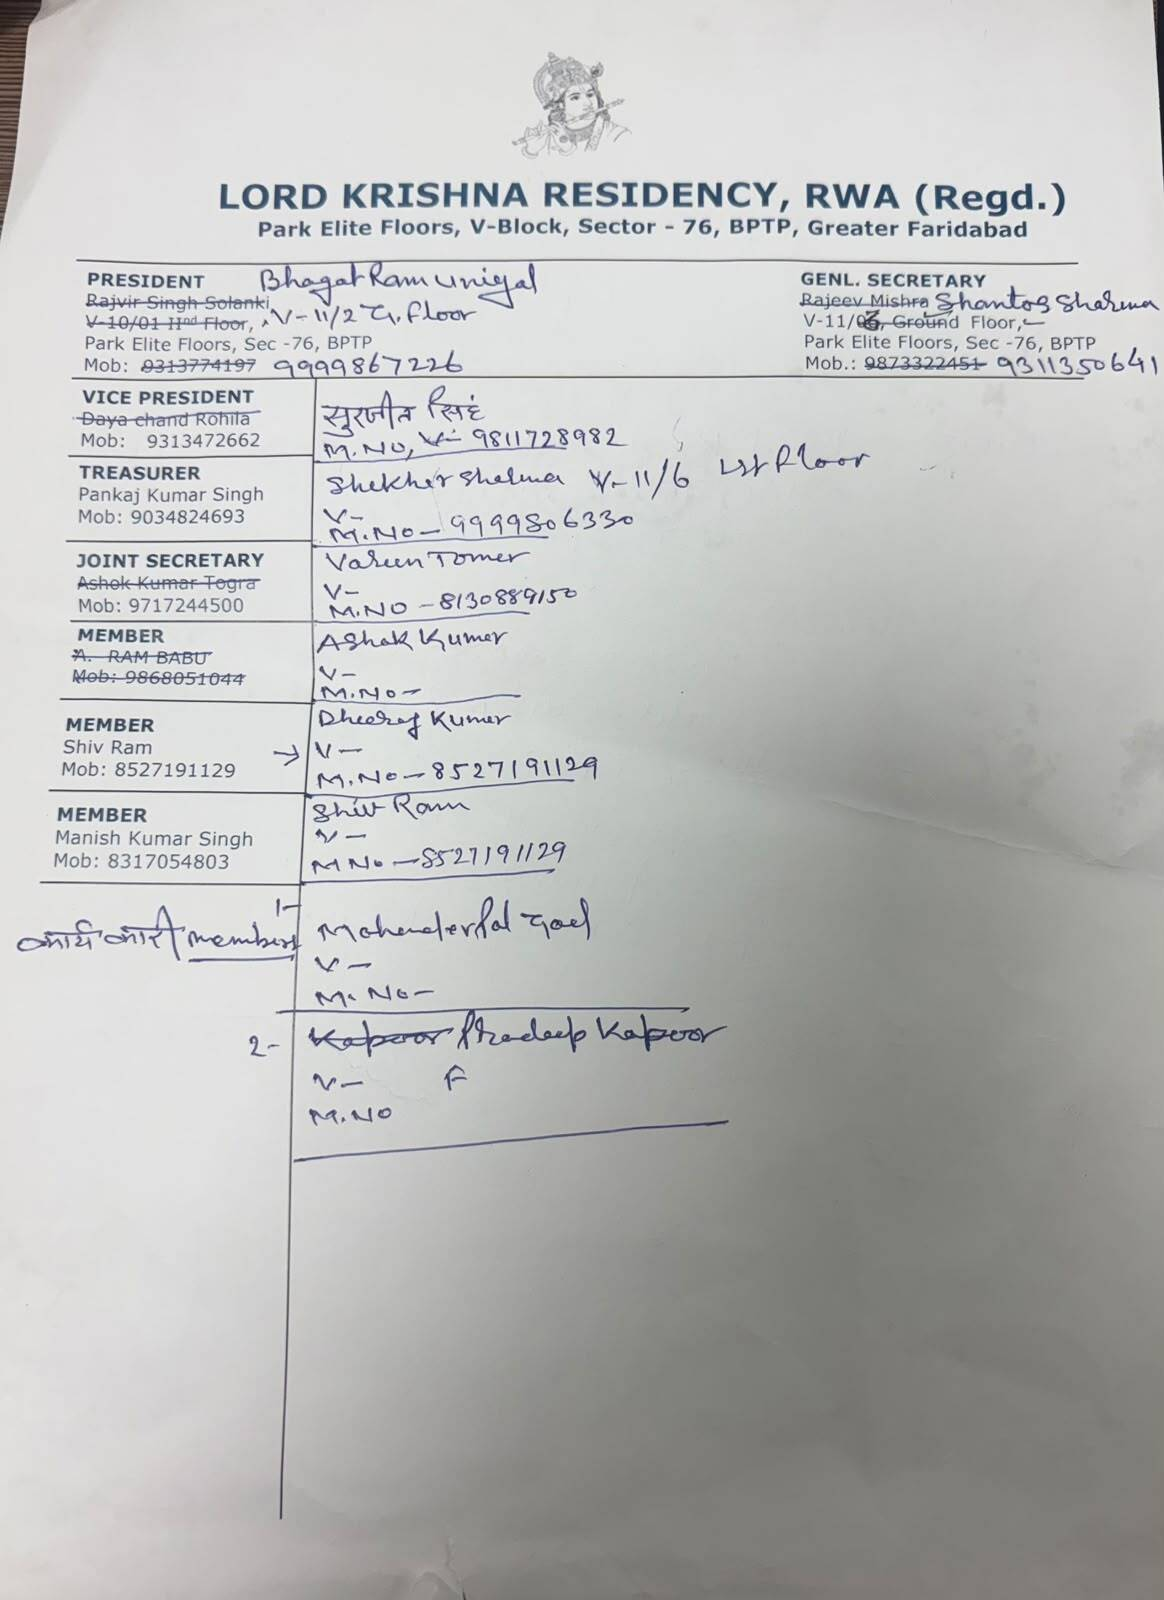 LORD KRISHNA RESIDENCY, RWA (Regd.)
Park Elite Floors, V-Block, Sector - 76, BPTP, Greater Faridabad
PRESIDENT Bhagat Ram Uniyal
Rajvir Singh Solanki
V-10/01 IInd Floor, V-11/2 G. Floor
Park Elite Floors, Sec -76, BPTP
Mob: 9313774197 9999867226
GENL. SECRETARY
Rajeev Mishra Shantos Sharma
V-11/03, Ground Floor,
Park Elite Floors, Sec -76, BPTP
Mob.: 9873322451 9311350641
VICE PRESIDENT
Daya chand Rohila
Mob: 9313472662
सुरजीत सिंह
M.NO, V- 9811728982
TREASURER
Pankaj Kumar Singh
Mob: 9034824693
Shekher Sharma V-11/6 1st Floor
V-
M.NO- 9999806330
JOINT SECRETARY
Ashok Kumar Togra
Mob: 9717244500
Varun Tomer
V-
M.NO - 8130889150
MEMBER
A. RAM BABU
Mob: 9868051044
Ashok Kumer
V-
M.NO-
MEMBER
Shiv Ram
Mob: 8527191129
→
Dheeraj Kumer
V-
M.NO- 8527191129
MEMBER
Manish Kumar Singh
Mob: 8317054803
Shiv Ram
V-
M NO - 8527191129
कार्यकारी members
1-
Mohenderpal Goel
V-
M. NO-
2- Kapoor Pradeep Kapoor
V- F
M.NO